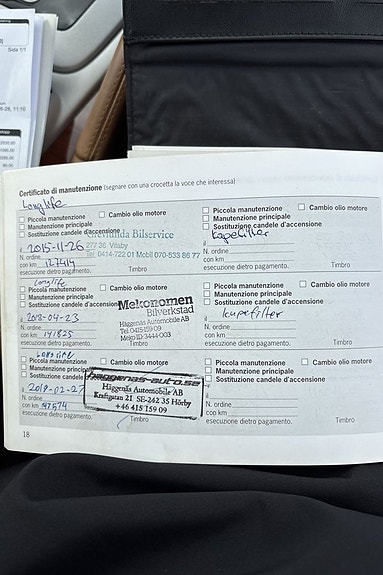 Sida 1/1
Certificato di manutenzione (segnare con una crocetta la voce che interessa)
Longlife
Piccola manutenzione
Cambio olio motore
Manutenzione principale
Sostituzione candele d'accensione
Bilservice
il 2015-11-26
277 36 Vitaby
N. ordine
Tel 0414-722 01 Mobil 070-533 86 77
con km 127414
esecuzione dietro pagamento.
Timbro
Piccola manutenzione
Cambio olio motore
Manutenzione principale
Sostituzione candele d'accensione
kupefilter
il
N. ordine
con km
esecuzione dietro pagamento.
Timbro
Longlife
Piccola manutenzione
Cambio olio motore
Manutenzione principale
Sostituzione candele
Mekonomen
Bilverkstad
Häggenäs Automobile AB
Tel 0415 159 09
Meko ID 3444-003
il 2018-04-23
N. ordine
con km 141825
esecuzione dietro pagamento.
Timbro
Piccola manutenzione
Cambio olio motore
Manutenzione principale
Sostituzione candele d'accensione
kupefilter
il
N. ordine
con km
esecuzione dietro pagamento.
Timbro
Longlife
Piccola manutenzione
Cambio olio motore
Manutenzione
Sostituzione candele
haggenas-auto.se
Häggenäs Automobile AB
Kraftgatan 21 SE-262 35 Hörby
+46 415 159 09
il 2019-02-27
N. ordine
con km
esecuzione dietro pagamento.
Timbro
Piccola manutenzione
Cambio olio motore
Manutenzione principale
Sostituzione candele d'accensione
il
N. ordine
con km
esecuzione dietro pagamento.
Timbro
18